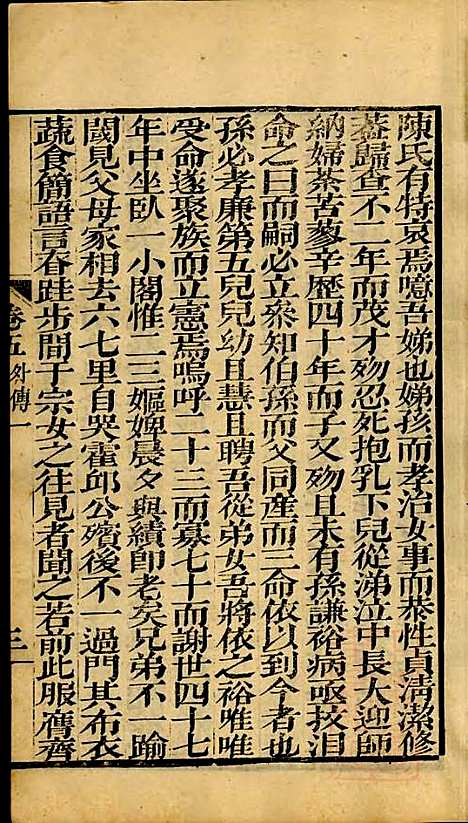 陳氏有特哀焉噫吾娣也娣孩而孝治女事而恭性貞清潔修
菴歸查不二年而茂才歿忍死抱乳下兒從涕泣中長大迎師
納婦荼苦蓼辛歷四十年而子又歿且未有孫謙裕病亟抆淚
命之曰而嗣必立粂知伯孫而父同產而三命依以到今者也
孫必孝廉第五兒兒幼且慧且聘吾從弟女吾將依之裕唯唯
受命遂聚族而立憲焉嗚呼二十三而寡七十而謝世四十七
年中坐臥一小閣惟二三嫗婢晨夕與績即老矣兄弟不一踰
閾見父母家相去六七里自哭霍邱公殯後不一過門其布衣
蔬食簡語言眘跬步間于宗女之往見者聞之若前此服膺齊
卷五外傳一
三